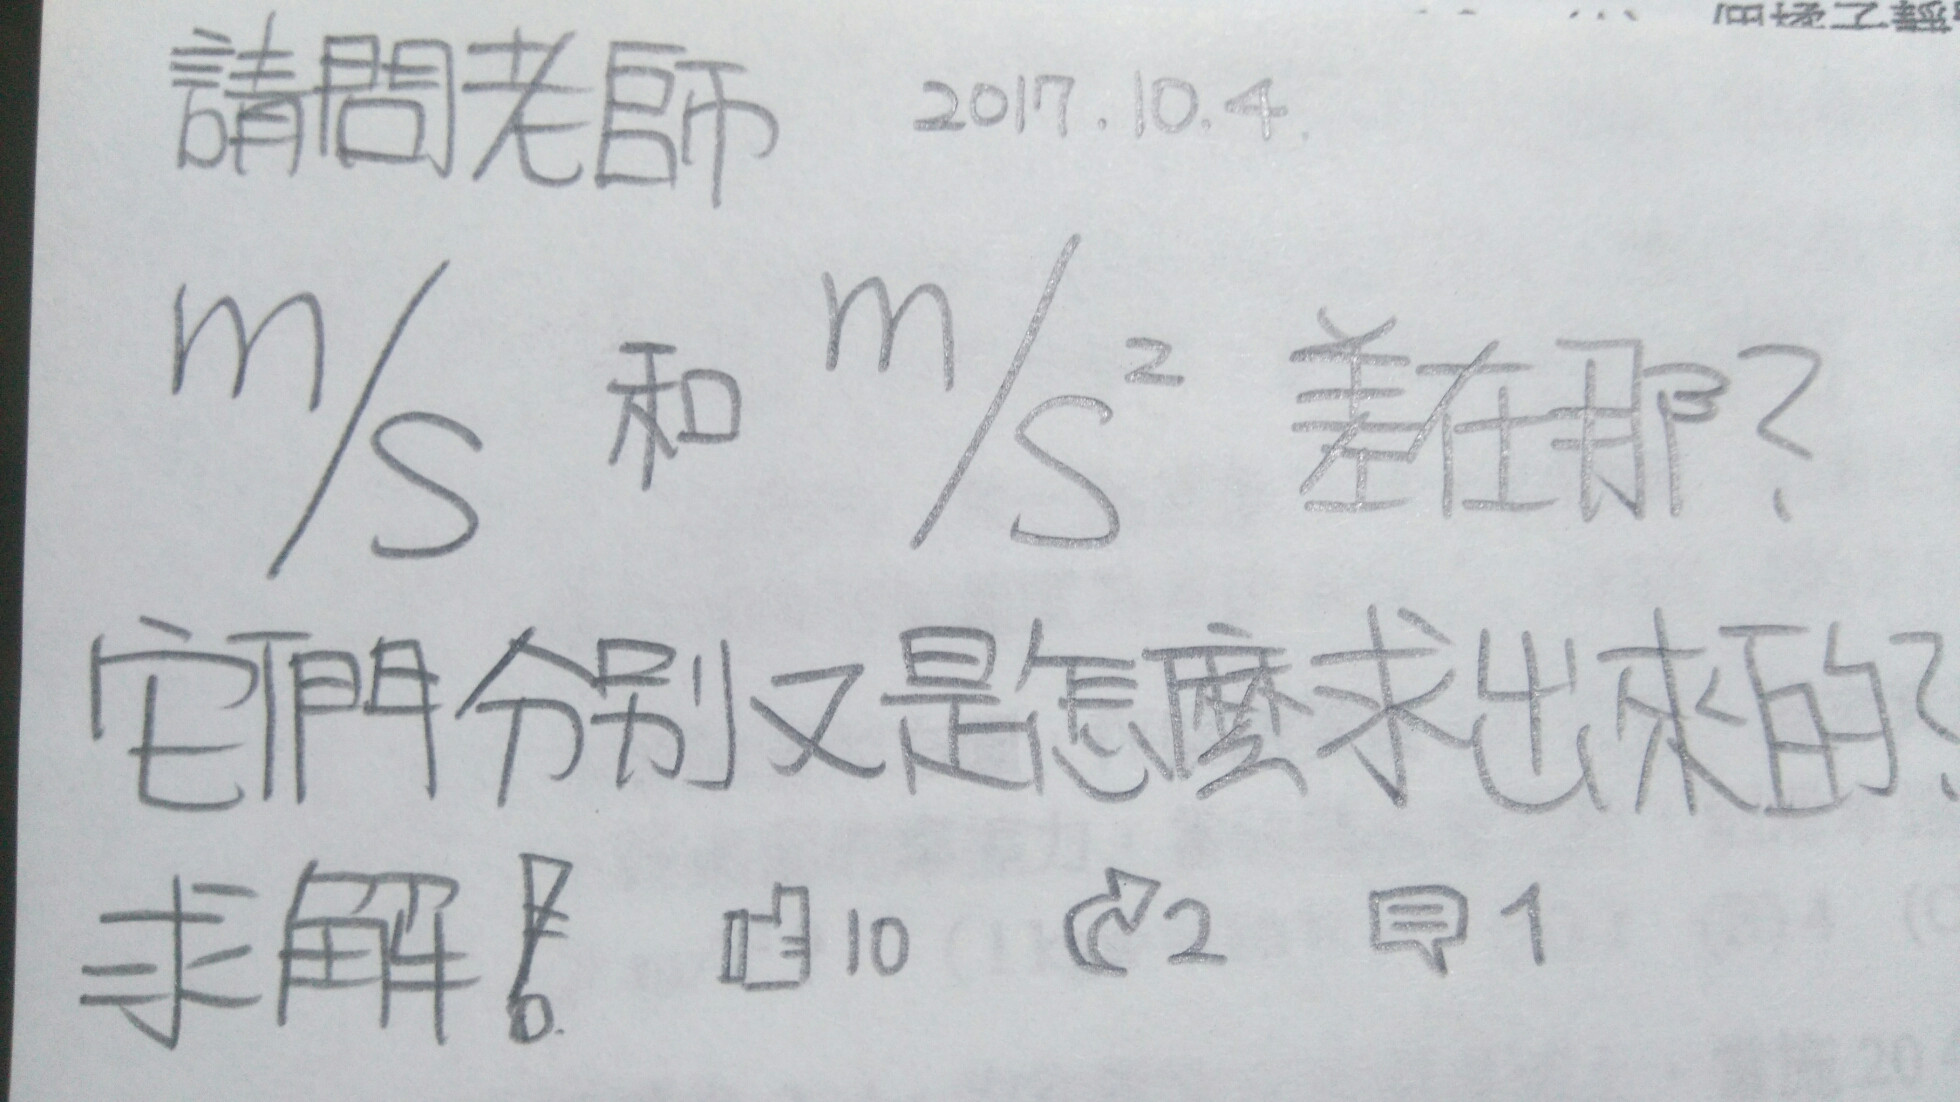 請問老師 2017.10.4.
m/s 和 m/s² 差在那?
它們分別又是怎麼求出來的?
求解! 10 2 1